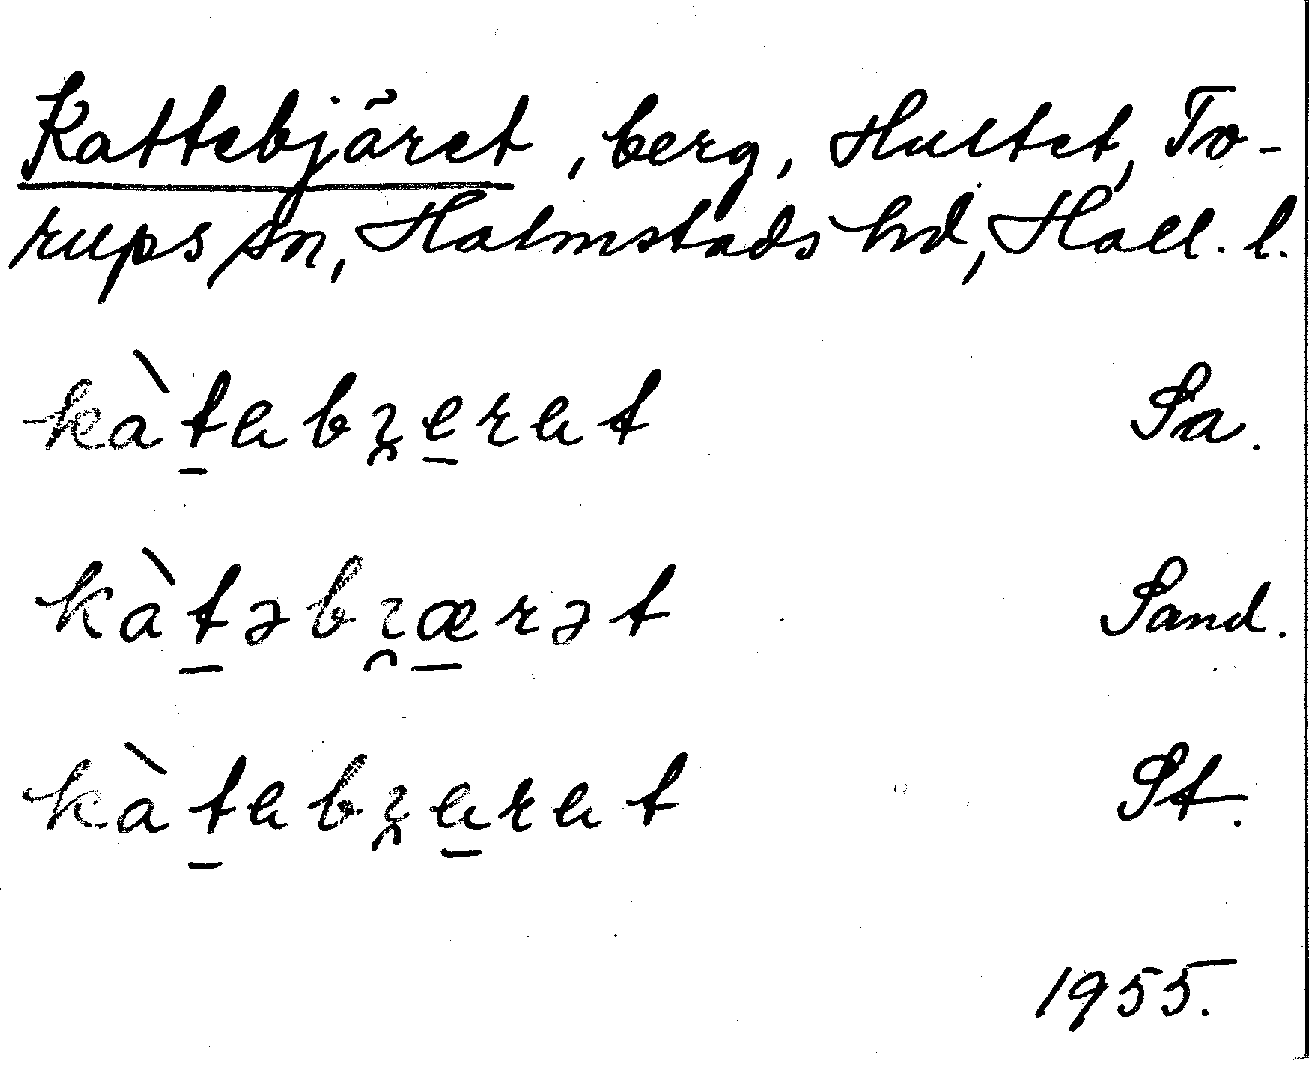 Kattebjäret, berg, Hultet, To-
rups sn, Halmstads hd, Hall. l.
kàtabɀerat Sa.
kàtəbɀærət Sand.
kàtabɀarat St.
1955.